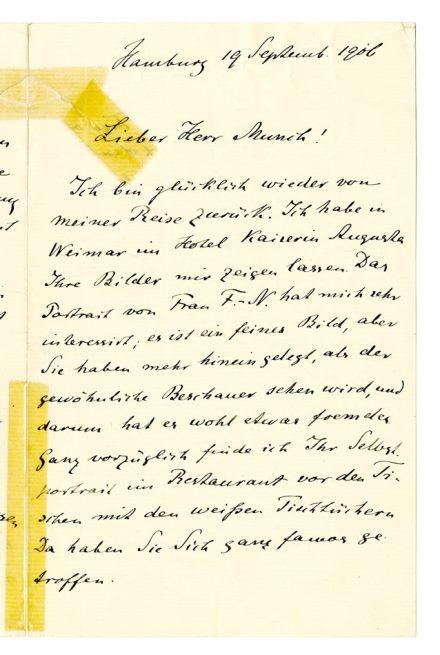 Hamburg 19 Septemb. 1906
Lieber Herr Munch!
Ich bin glücklich wieder von
meiner Reise zurück. Ich habe in
Weimar im Hotel Kaiserin Augusta
Ihre Bilder mir zeigen lassen. Das
Portrait von Frau F.-N. hat mich sehr
interessirt; es ist ein feines Bild, aber
Sie haben mehr hineingelegt, als der
gewöhnliche Beschauer sehen wird, und
darum hat es wohl etwas fremdes
Ganz vorzüglich finde ich Ihr Selbst
portrait im Restaurant vor den Ti-
schen mit den weißen Tischtüchern
Da haben Sie Sich ganz famos ge
troffen.